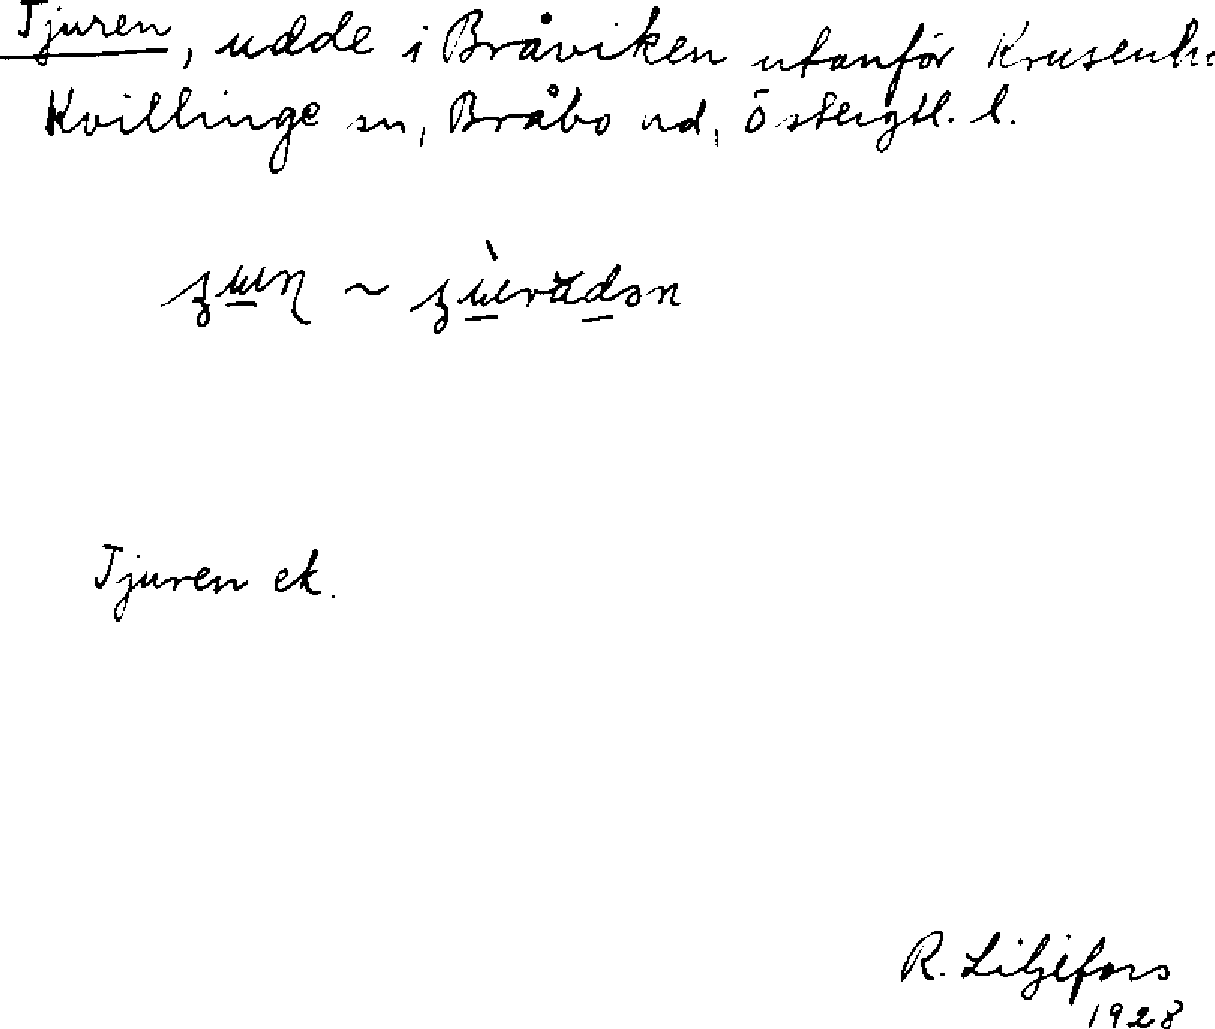 Tjuren, udde i Bråviken utanför Krusenh
Kvillinge sn, Bråbo hd, Östergtl. l.
Tjuren ek.
R. Liljefors
1928